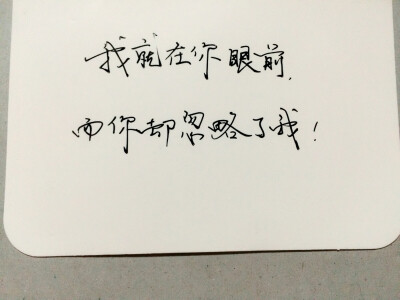 我就在你眼前,
而你却忽略了我!